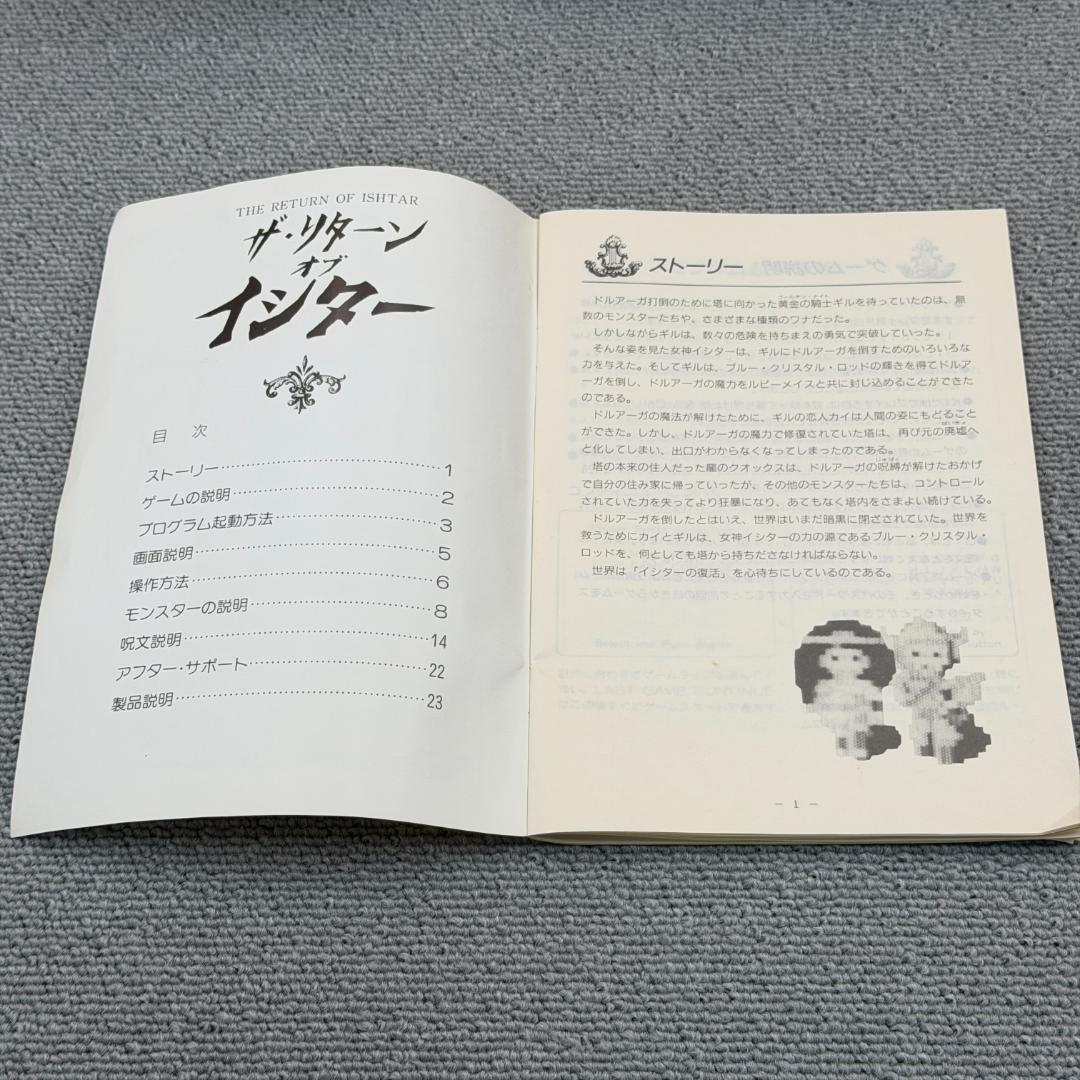 THE RETURN OF ISHTAR
ザ・リターン
オブ
イシター
目 次
ストーリー……………………………1
ゲームの説明…………………………2
プログラム起動方法…………………3
画面説明………………………………5
操作方法………………………………6
モンスターの説明……………………8
呪文説明………………………………14
アフター・サポート…………………22
製品説明………………………………23
ストーリー
ゴールデン・ナイト
ドルアーガ打倒のために塔に向かった黄金の騎士ギルを待っていたのは、無
数のモンスターたちや、さまざまな種類のワナだった。
しかしながらギルは、数々の危険を持ちまえの勇気で突破していった。
そんな姿を見た女神イシターは、ギルにドルアーガを倒すためのいろいろな
力を与えた。そしてギルは、ブルー・クリスタル・ロッドの輝きを得てドルア
ーガを倒し、ドルアーガの魔力をルビーメイスと共に封じ込めることができた
のである。
ドルアーガの魔法が解けたために、ギルの恋人カイは人間の姿にもどること
ができた。しかし、ドルアーガの魔力で修復されていた塔は、再び元の廃墟へ
と化してしまい、出口がわからなくなってしまったのである。
塔の本来の住人だった龍のクオックスは、ドルアーガの呪縛が解けたおかげ
で自分の住み家に帰っていったが、その他のモンスターたちは、コントロール
されていた力を失ってより狂暴になり、あてもなく塔内をさまよい続けている。
ドルアーガを倒したとはいえ、世界はいまだ暗黒に閉ざされていた。世界を
救うためにカイとギルは、女神イシターの力の源であるブルー・クリスタル・
ロッドを、何としても塔から持ちださなければならない。
世界は「イシターの復活」を心待ちにしているのである。
— 1 —